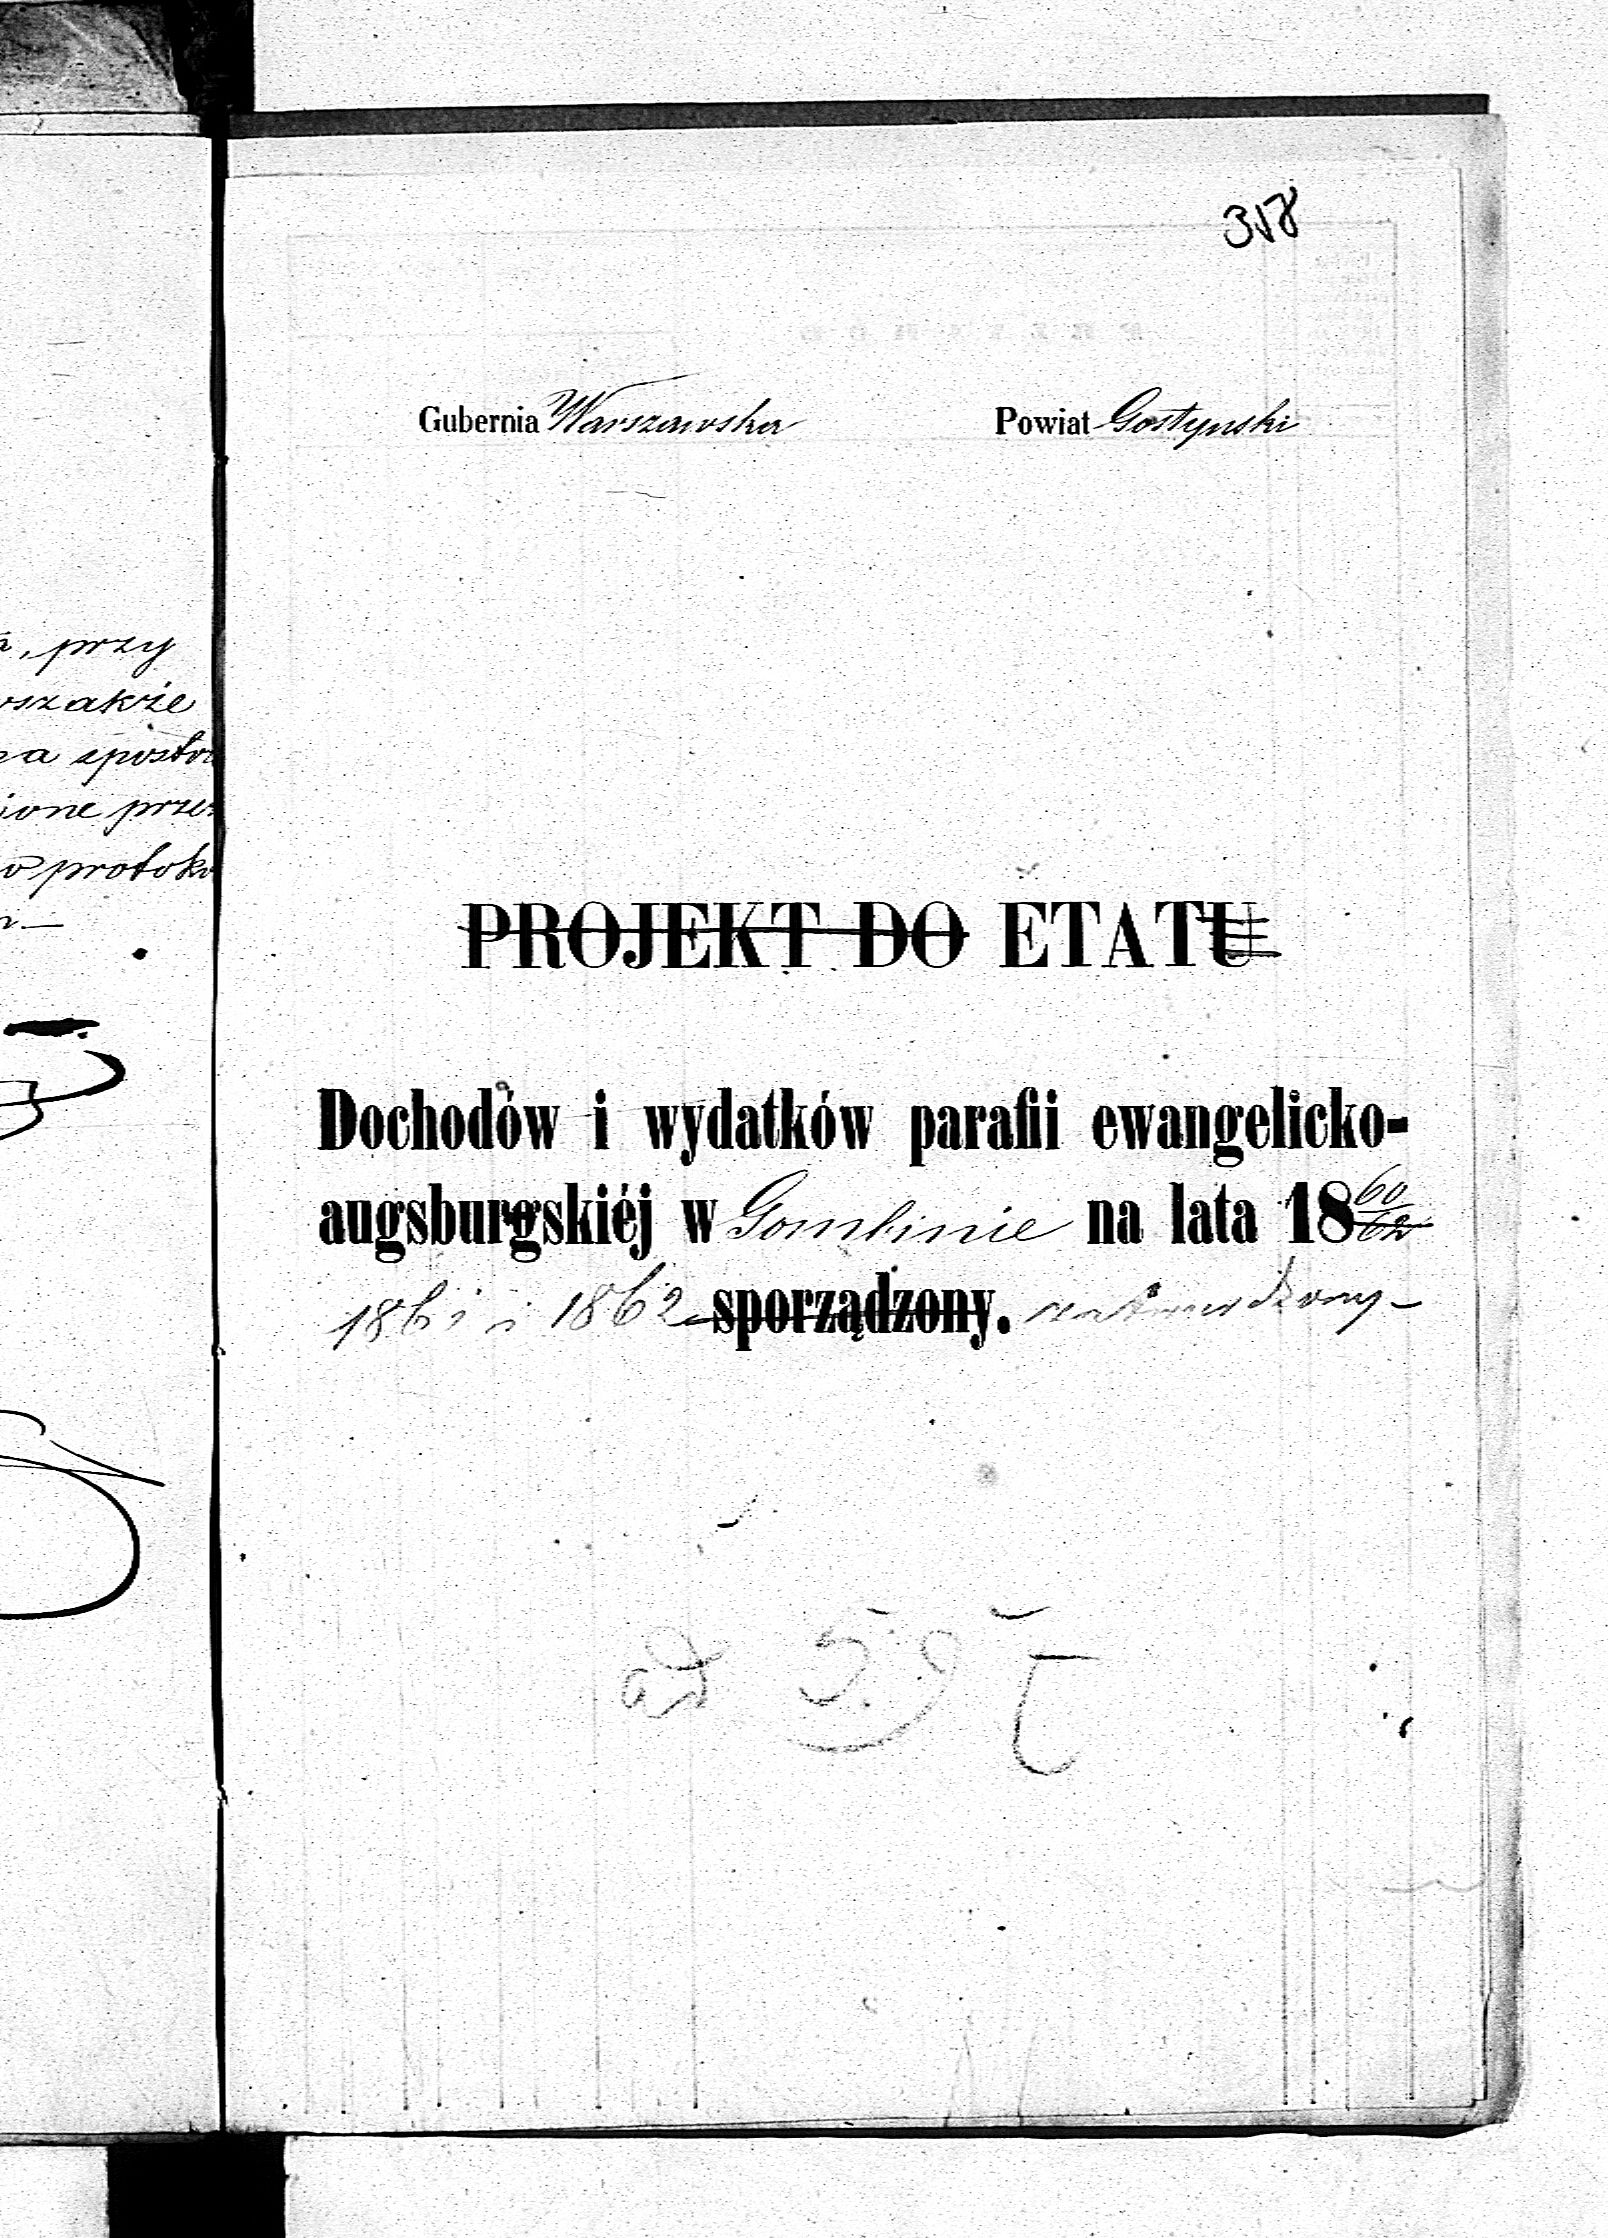 318
Gubernia Warszawska Powiat Gostynski
przy
wszakże
protoko
PROJEKT DO ETATU
Dochodów i wydatków parafii ewangelicko-
augsburgskiéj w Gombinie na lata 18 60/62
1861 i 1862 sporządzony. zatwierdzony
ad